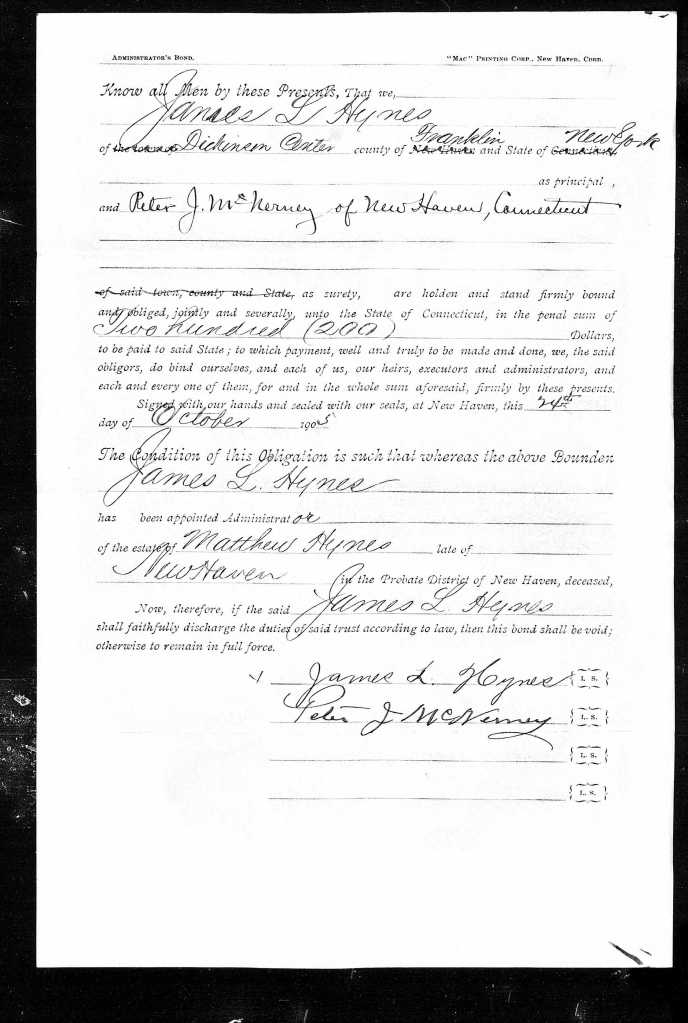 ADMINISTRATOR'S BOND. "MAC" PRINTING CORP., NEW HAVEN, CONN.
Know all Men by these Presents, That we,
James L Hynes
of the town of Dickinson Center county of New Haven Franklin and State of Connecticut New York
as principal,
and Peter J. McNerney of New Haven, Connecticut
of said town, county and State, as surety, are holden and stand firmly bound
and obliged, jointly and severally, unto the State of Connecticut, in the penal sum of
Two hundred (200) Dollars,
to be paid to said State; to which payment, well and truly to be made and done, we, the said
obligors, do bind ourselves, and each of us, our heirs, executors and administrators, and
each and every one of them, for and in the whole sum aforesaid, firmly by these presents.
Signed with our hands and sealed with our seals, at New Haven, this 24th
day of October 1905
The Condition of this Obligation is such that whereas the above Bounden
James L. Hynes
has been appointed Administrator
of the estate of Matthew Hynes late of
New Haven in the Probate District of New Haven, deceased,
Now, therefore, if the said James L. Hynes
shall faithfully discharge the duties of said trust according to law, then this bond shall be void;
otherwise to remain in full force.
James L. Hynes L. S.
Peter J McNerney L. S.
L. S.
L. S.